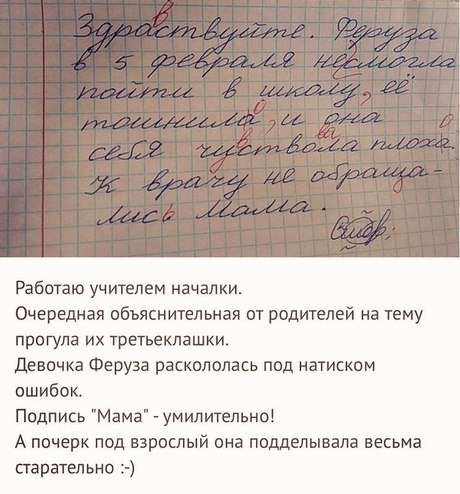 в
Здраствуйте. Феруза
в 5 февраля несмогла
пойти в школу, её
о
тошнила, и она
в ва о
себя чуствола плоха.
К врачу не обраща-
лись Мама.
Работаю учителем началки.
Очередная объяснительная от родителей на тему
прогула их третьеклашки.
Девочка Феруза раскололась под натиском
ошибок.
Подпись "Мама" - умилительно!
А почерк под взрослый она подделывала весьма
старательно :-)